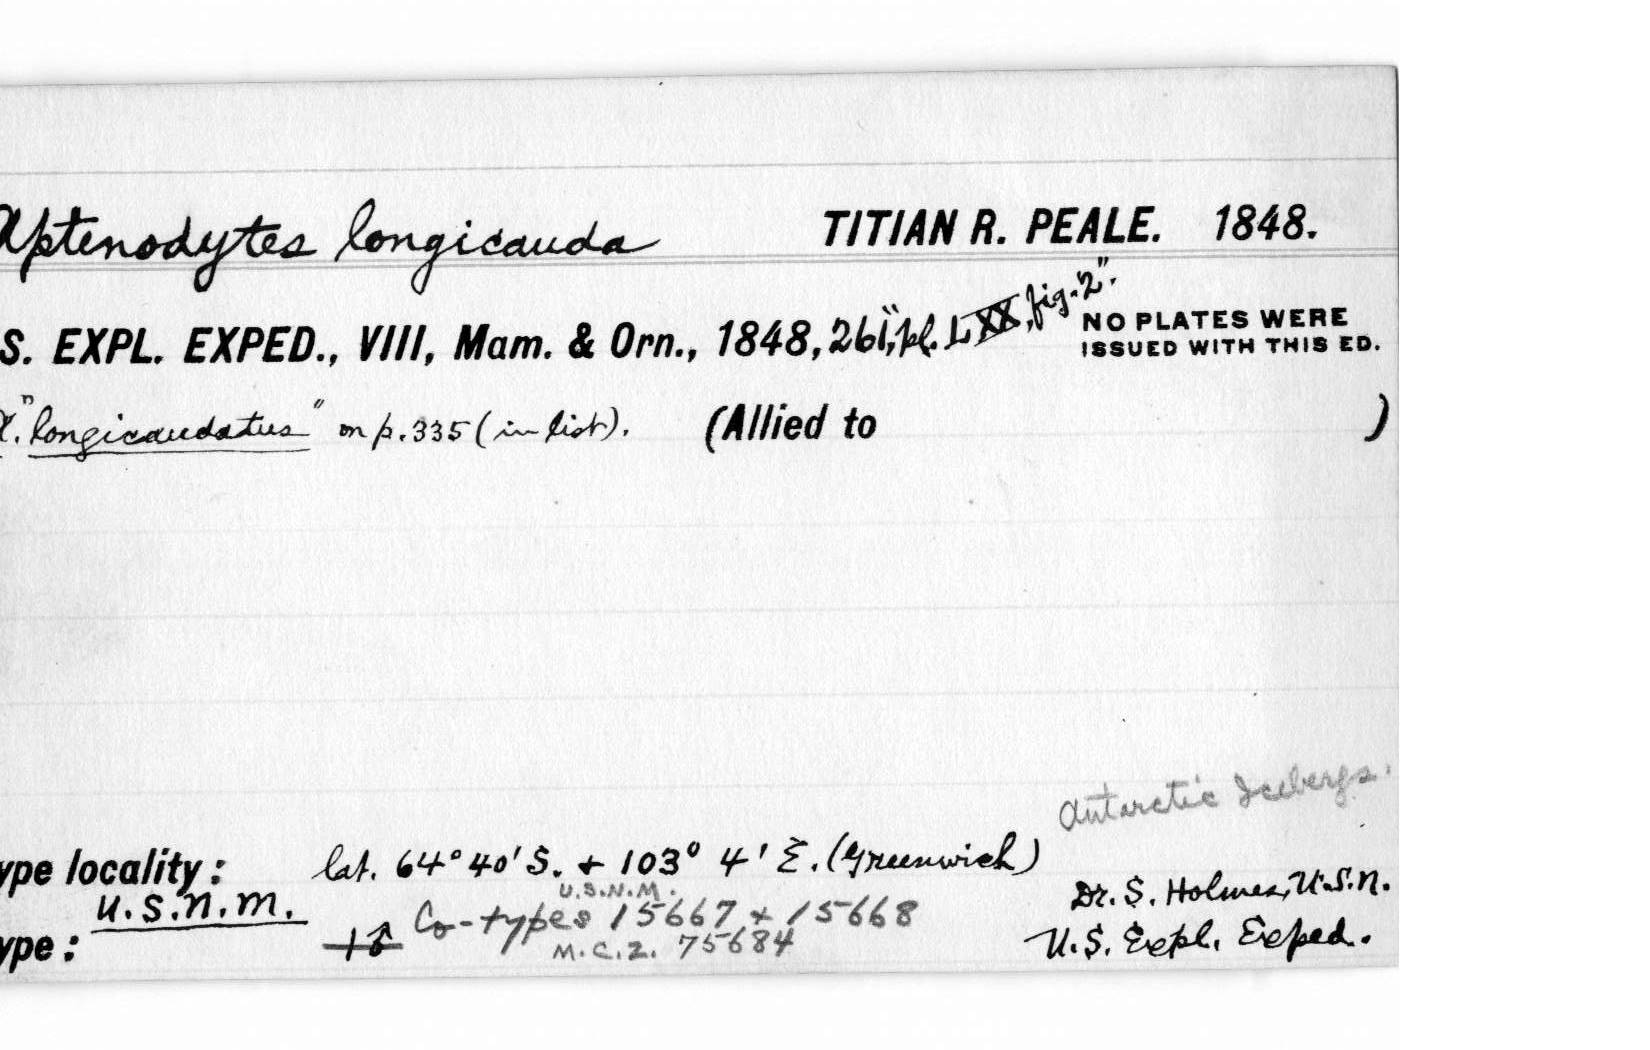 Aptenodytes longicauda TITIAN R. PEALE. 1848.
S. EXPL. EXPED., VIII, Mam. & Orn., 1848, 261, "pl. LXX, fig. 2". NO PLATES WERE
ISSUED WITH THIS ED.
A. "longicaudatus" on p. 335 (in list). (Allied to )
Antarctic Icebergs.
ype locality: lat. 64° 40' S. + 103° 4' E. (Greenwich)
U.S.N.M. U.S.N.M. Dr. S. Holmes, U.S.N.
ype: Co-types 15667 + 15668
M.C.Z. 75684 U.S. Expl. Exped.